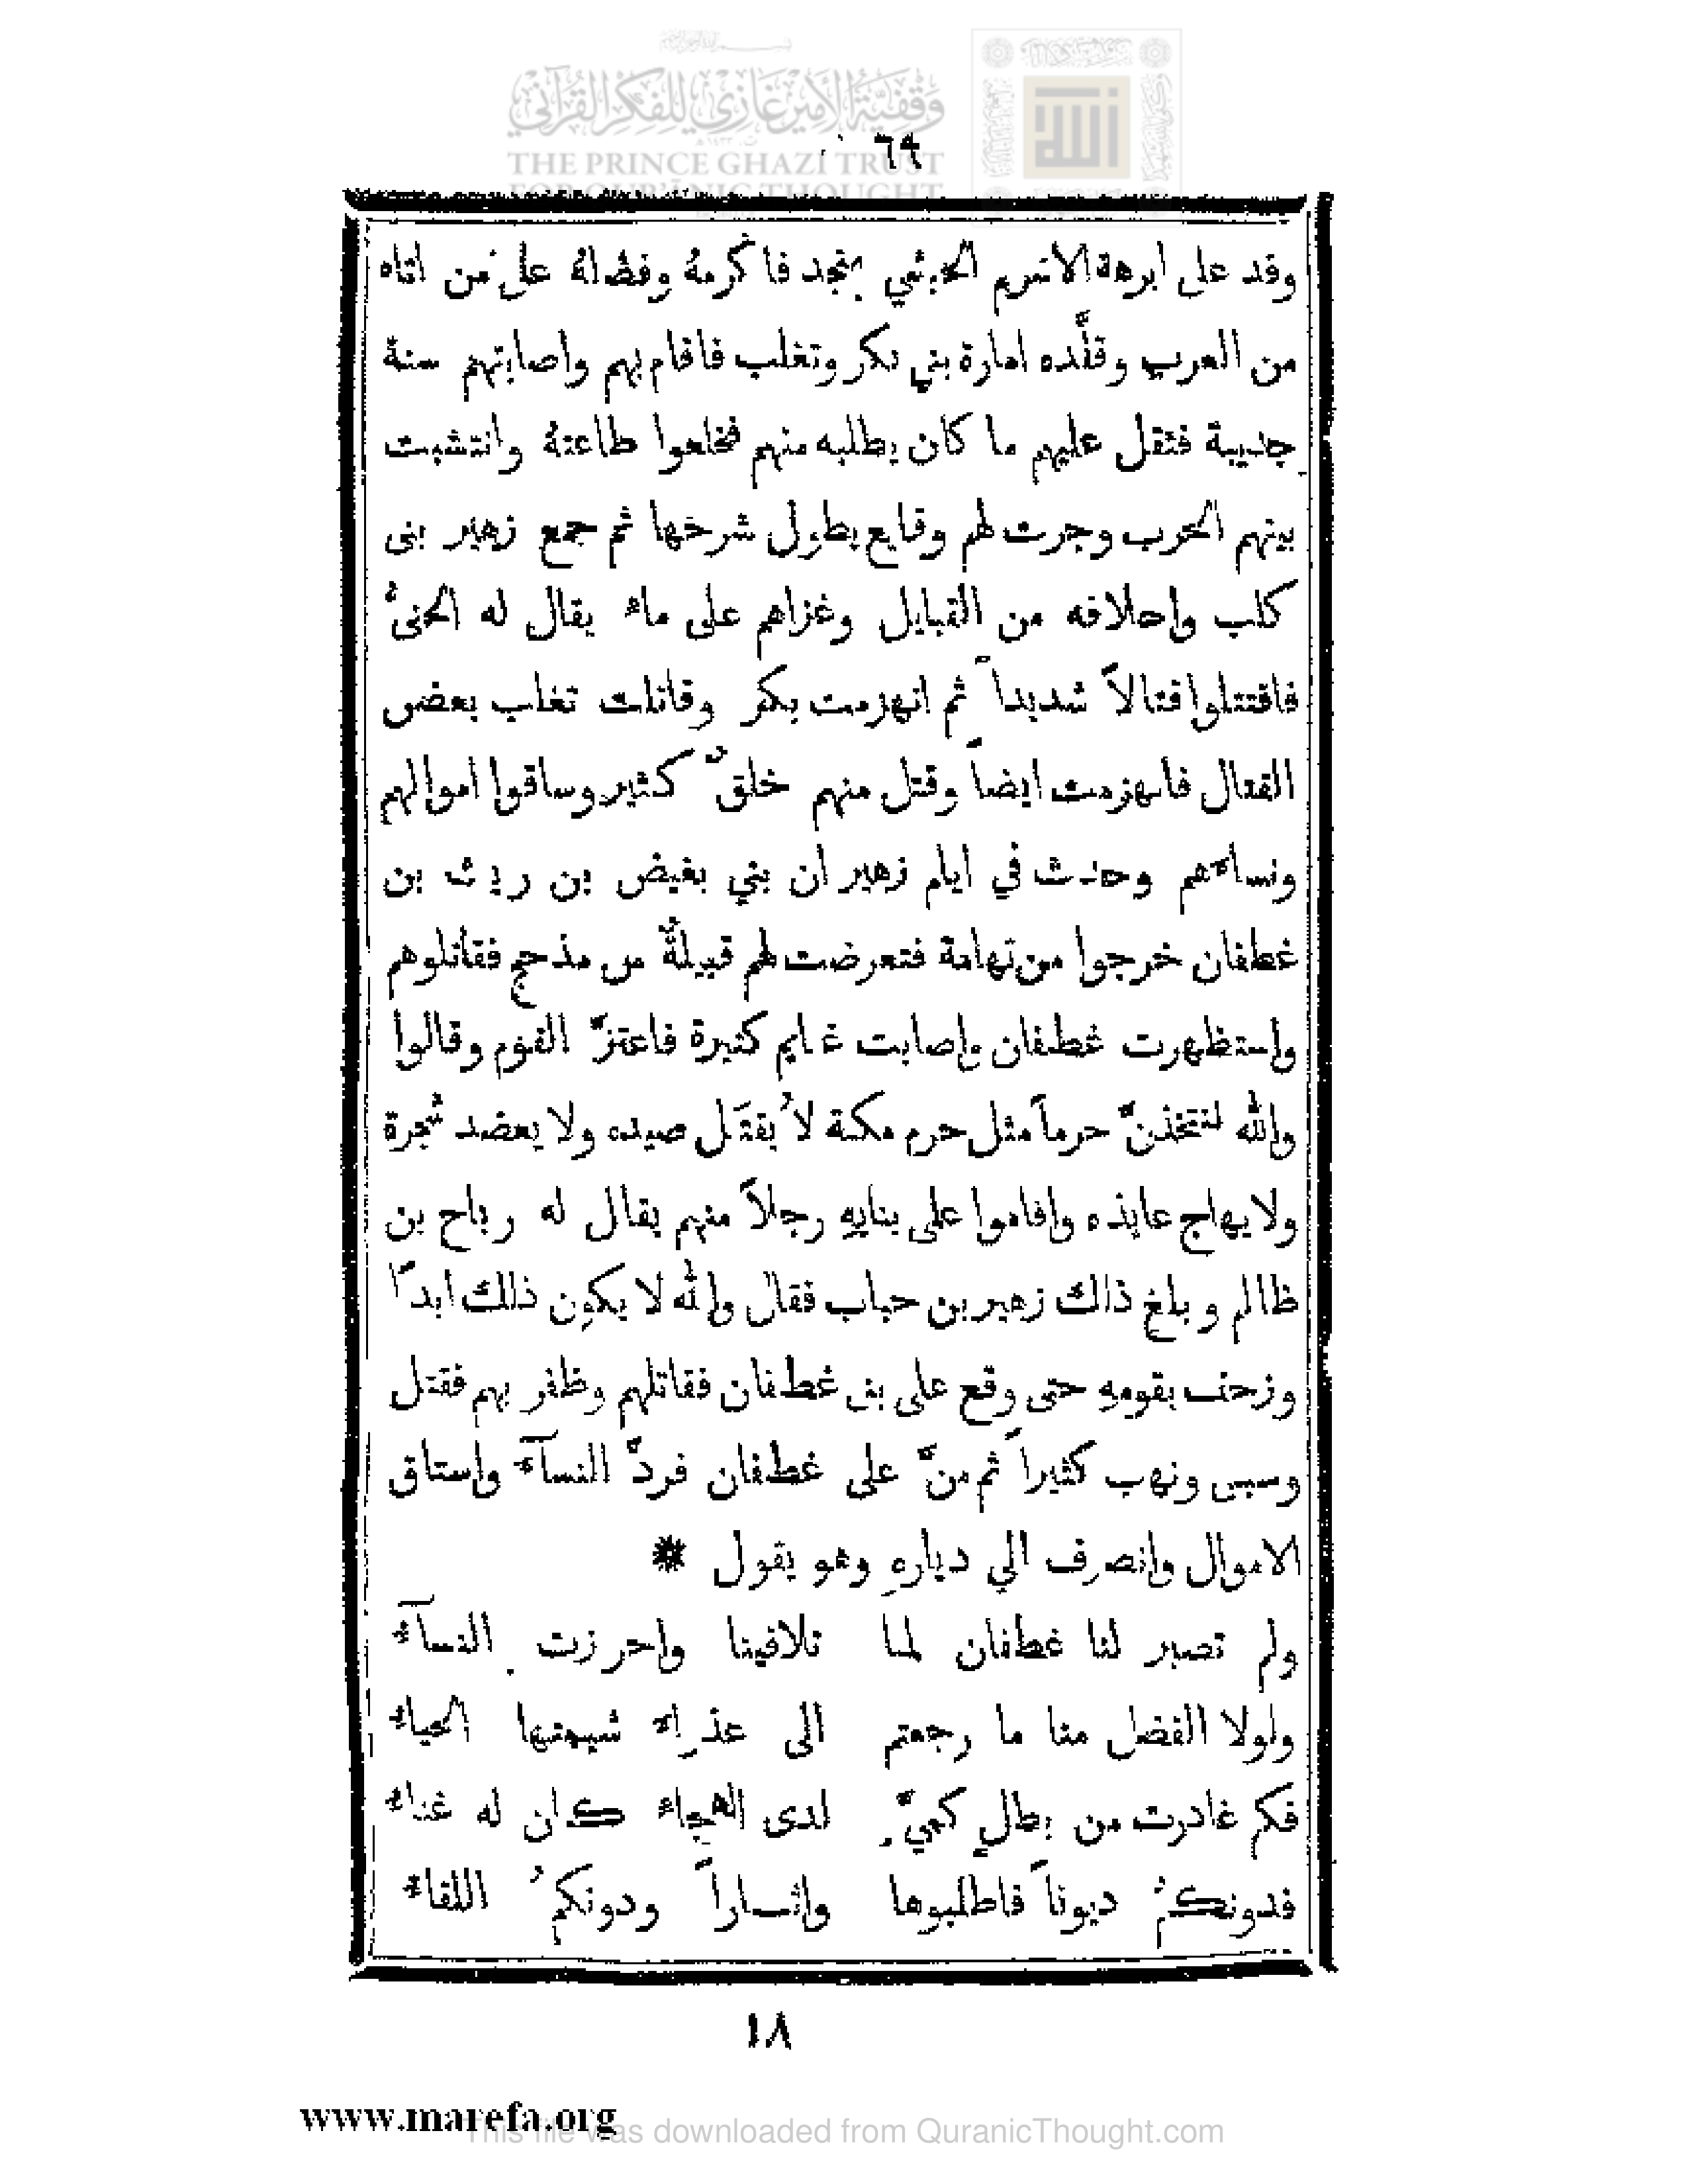 وقفية الأمير غازي للفكر القرآني
THE PRINCE GHAZI TRUST
FOR QUR'ĀNIC THOUGHT
٦٩
وفد على ابرهة الاشرم بنجد فاكرمهُ وفضلهُ على من اتاه
من العرب وقلَّده امارة بني بكر وتغلب فاقام بهم واصابتهم سنة
جديبة فثقل عليهم ما كان يطلبه منهم فخلعوا طاعتهُ وانتشبت
بينهم الحرب وجرت لهم وقايع يطول شرحها ثم جمع زهير بنى
كلب واحلافه من القبايل وغزاهم على ماء يقال له الحنىُ
فاقتتلوا قتالاً شديداً ثم انهزمت بكر وقاتلت تغلب بعض
القتال فانهزمت ايضاً وقتل منهم خلقٌ كثير وساقوا اموالهم
ونساءهم وحدث في ايام زهير ان بني بغيض بن ريث بن
غطفان خرجوا من تهامة فتعرضت لهم قبيلةٌ من مذحج فقاتلوهم
واستظهرت غطفان واصابت غنايم كثيرة فاعتزَّ القوم وقالوا
والله لنتخذنَّ حرماً مثل حرم مكة لا يُقتَل صيده ولا يعضد شجرة
ولا يهاج عايذه واقاموا على بنايهِ رجلاً منهم يقال له رباح بن
ظالم وبلغ ذاك زهير بن جباب فقال والله لا يكون ذلك ابداً
وزحف بقومهِ حتى وقع على بنى غطفان فقاتلهم وظفر بهم فقتل
وسبى ونهب كثيراً ثم منَّ على غطفان فردَّ النسآءَ واستاق
الاموال وانصرف الي ديارهِ وهو يقول *
ولم تصبر لنا غطفان لما تلاقينا واحرزت النسآءُ
ولولا الفضل منا ما رجعتم الى عذراء شيمتها الحياءُ
فكم غادرت من بطلٍ كميٍّ لدى الهيجاء كان له غناءُ
فدونكمُ ديوناً فاطلبوها واثساراً ودونكمُ اللقاءُ
١٨
www.marefa.org
This file was downloaded from QuranicThought.com